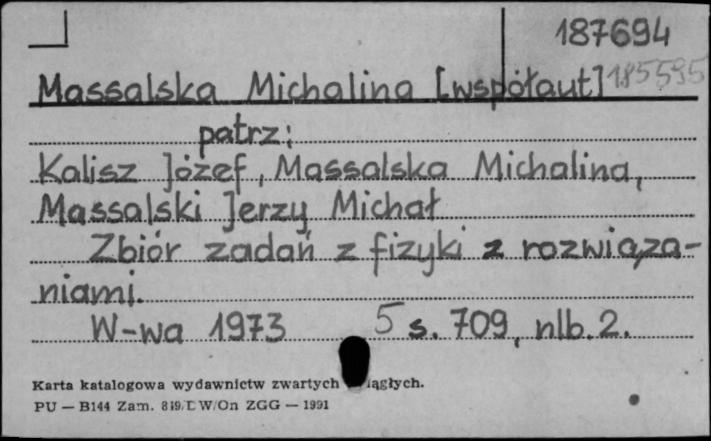 187694
Massalska Michalina [współaut] 185595
patrz:
Kalisz Józef, Massalska Michalina,
Massalski Jerzy Michał
Zbiór zadań z fizyki z rozwiąza-
niami.
W-wa 1973 5 s. 709, nlb. 2.
Karta katalogowa wydawnictw zwartych iągłych.
PU — B144 Zam. 819/DW/On ZGG — 1991